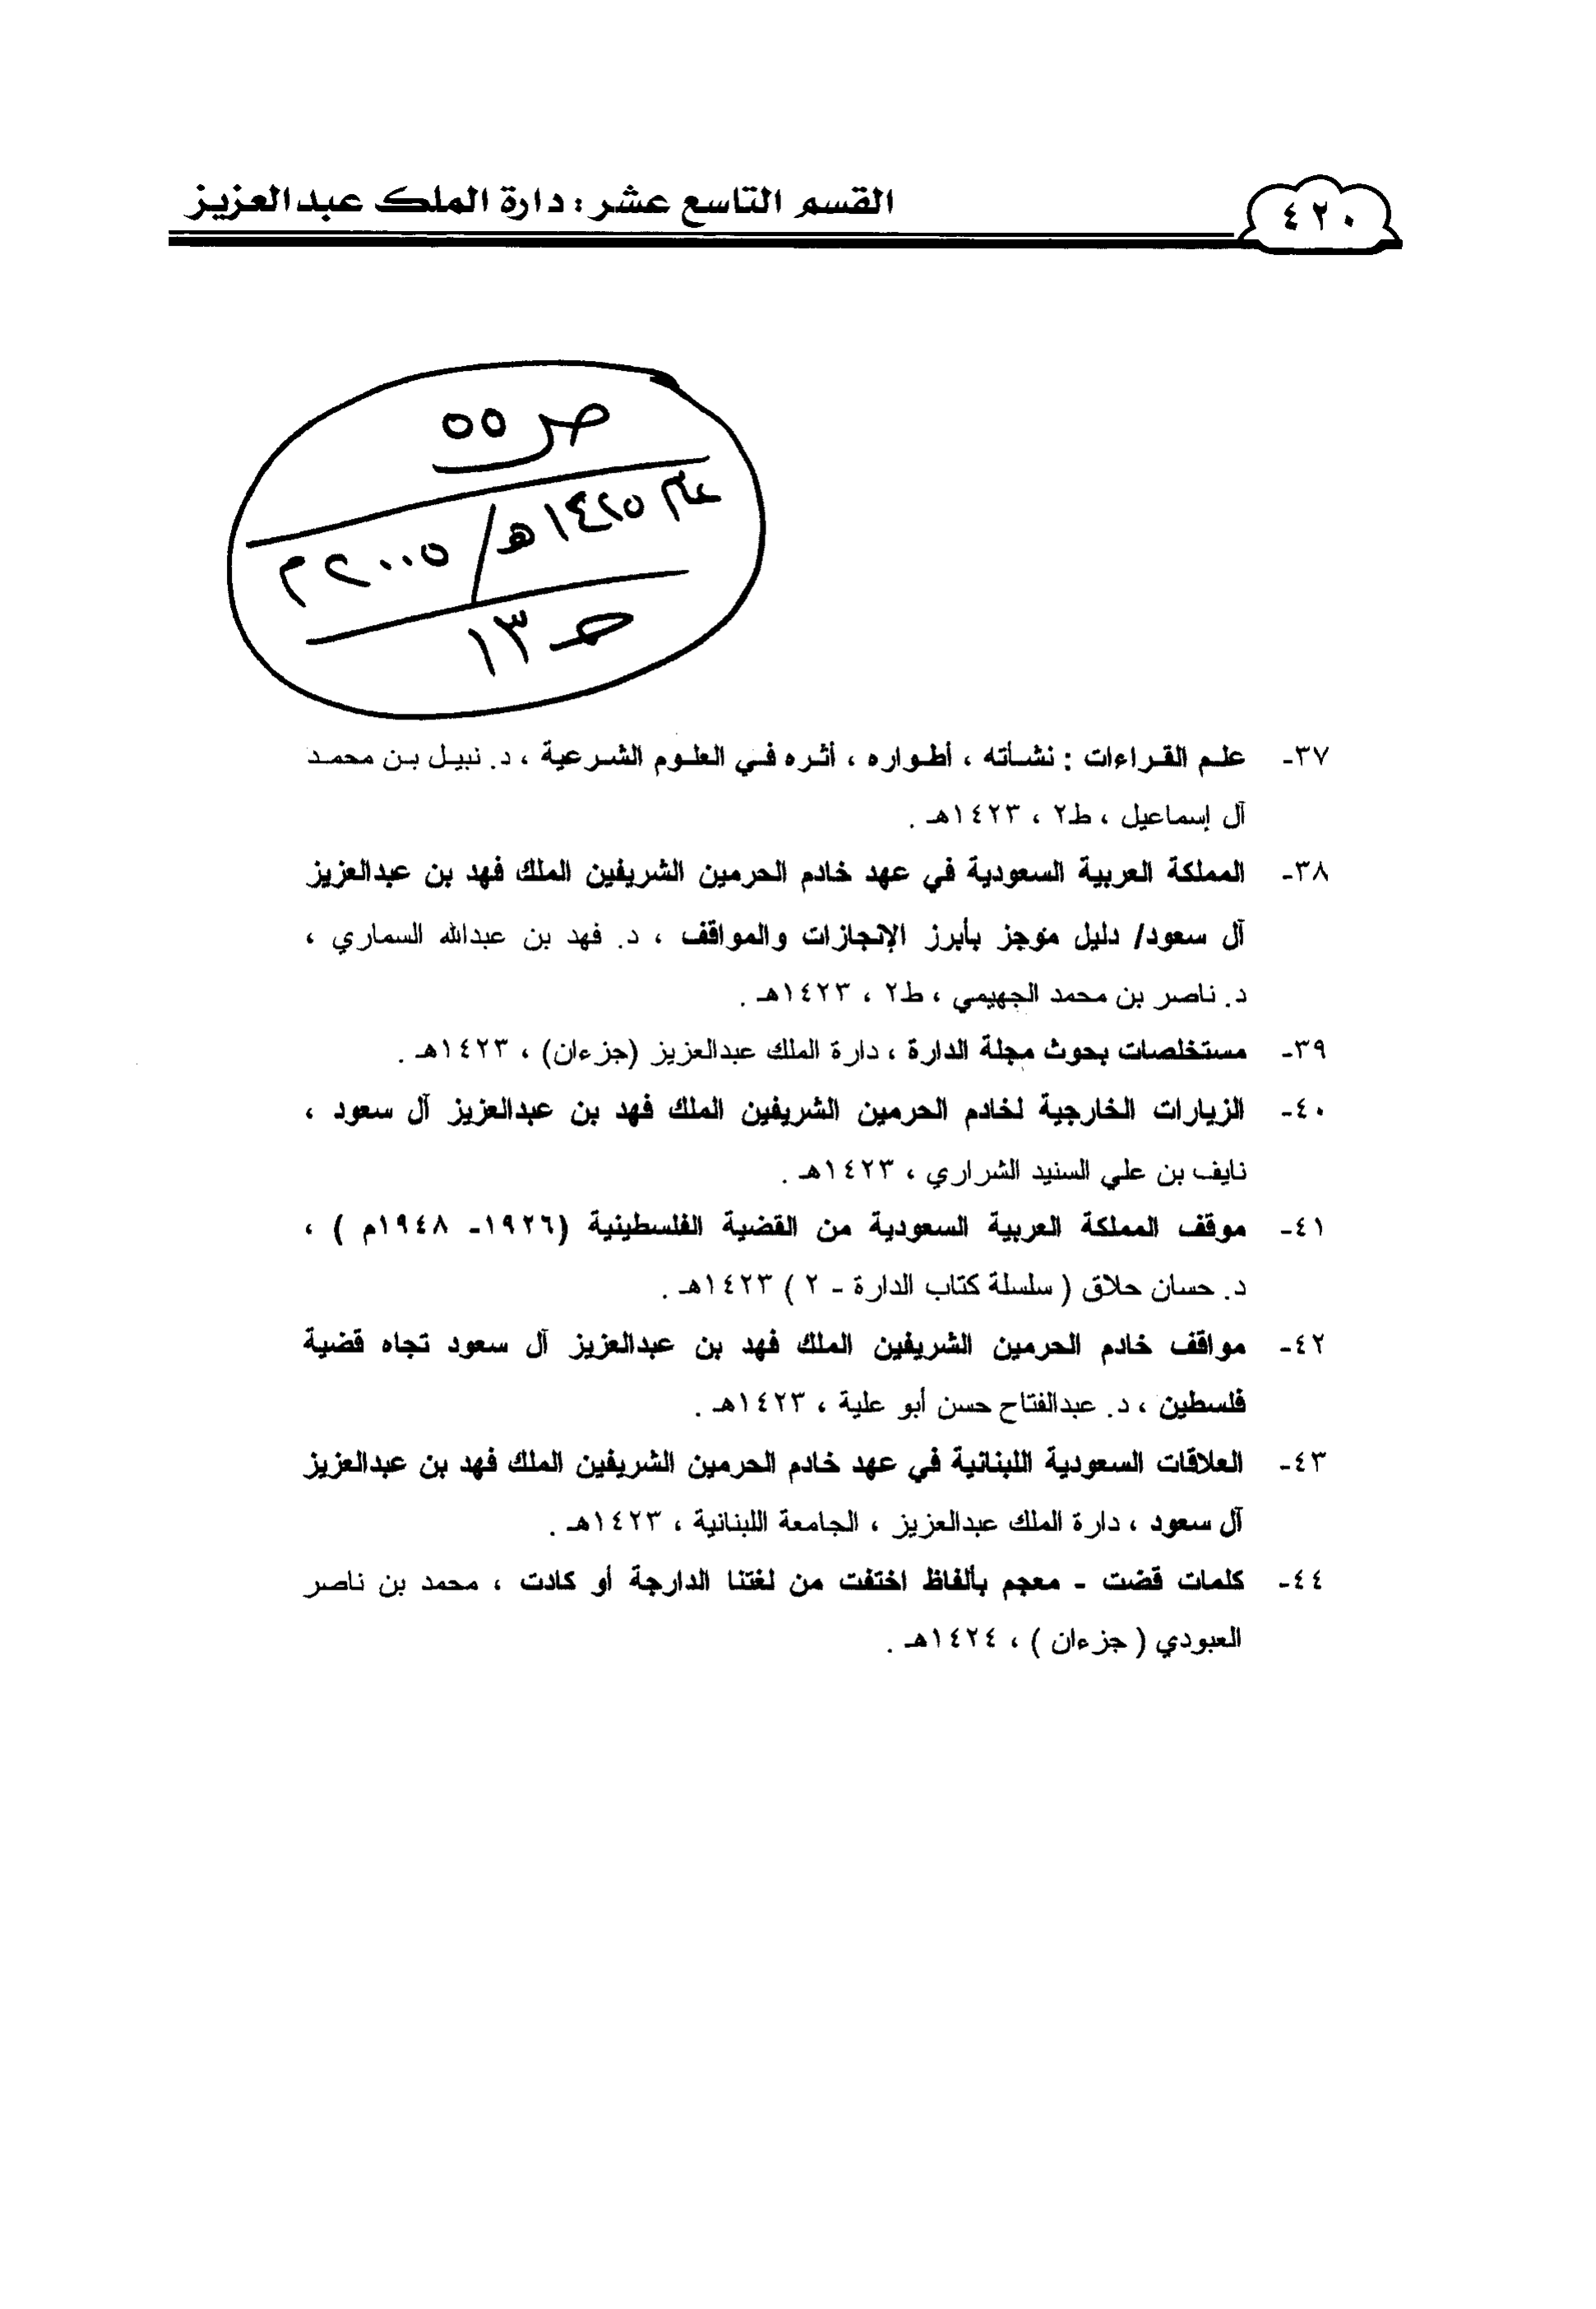 ٤٢٠
القسم التاسع عشر : دارة الملك عبدالعزيز
ص ٥٥
عام ١٤٢٥هـ / ٢٠٠٥م
حـ ١٣
٣٧- علم القراءات : نشأته ، أطواره ، أثره في العلوم الشرعية ، د. نبيل بن محمد
آل إسماعيل ، ط٢ ، ١٤٢٣هـ .
٣٨- المملكة العربية السعودية في عهد خادم الحرمين الشريفين الملك فهد بن عبدالعزيز
آل سعود/ دليل موجز بأبرز الإنجازات والمواقف ، د. فهد بن عبدالله السماري ،
د. ناصر بن محمد الجهيمي ، ط٢ ، ١٤٢٣هـ .
٣٩- مستخلصات بحوث مجلة الدارة ، دارة الملك عبدالعزيز (جزءان) ، ١٤٢٣هـ .
٤٠- الزيارات الخارجية لخادم الحرمين الشريفين الملك فهد بن عبدالعزيز آل سعود ،
نايف بن علي السنيد الشراري ، ١٤٢٣هـ .
٤١- موقف المملكة العربية السعودية من القضية الفلسطينية (١٩٢٦- ١٩٤٨م ) ،
د. حسان حلاق ( سلسلة كتاب الدارة - ٢ ) ١٤٢٣هـ .
٤٢- مواقف خادم الحرمين الشريفين الملك فهد بن عبدالعزيز آل سعود تجاه قضية
فلسطين ، د. عبدالفتاح حسن أبو علية ، ١٤٢٣هـ .
٤٣- العلاقات السعودية اللبنانية في عهد خادم الحرمين الشريفين الملك فهد بن عبدالعزيز
آل سعود ، دارة الملك عبدالعزيز ، الجامعة اللبنانية ، ١٤٢٣هـ .
٤٤- كلمات قضت - معجم بألفاظ اختفت من لغتنا الدارجة أو كادت ، محمد بن ناصر
العبودي ( جزءان ) ، ١٤٢٤هـ .